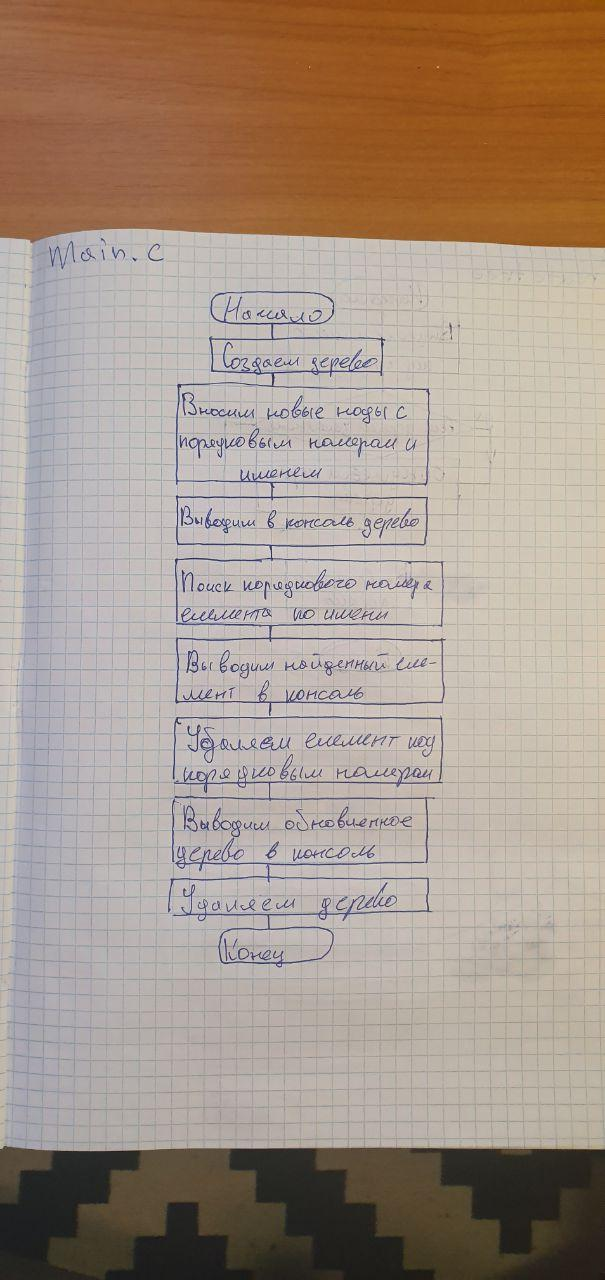 Main.c
Начало
Создаем дерево
Вносим новые ноды с
порядковым номером и
именем
Выводим в консоль дерево
Поиск порядкового номера
елемента по имени
Выводим найденный еле-
мент в консоль
Удаляем елемент под
порядковым номером
Выводим обновленное
дерево в консоль
Удаляем дерево
Конец